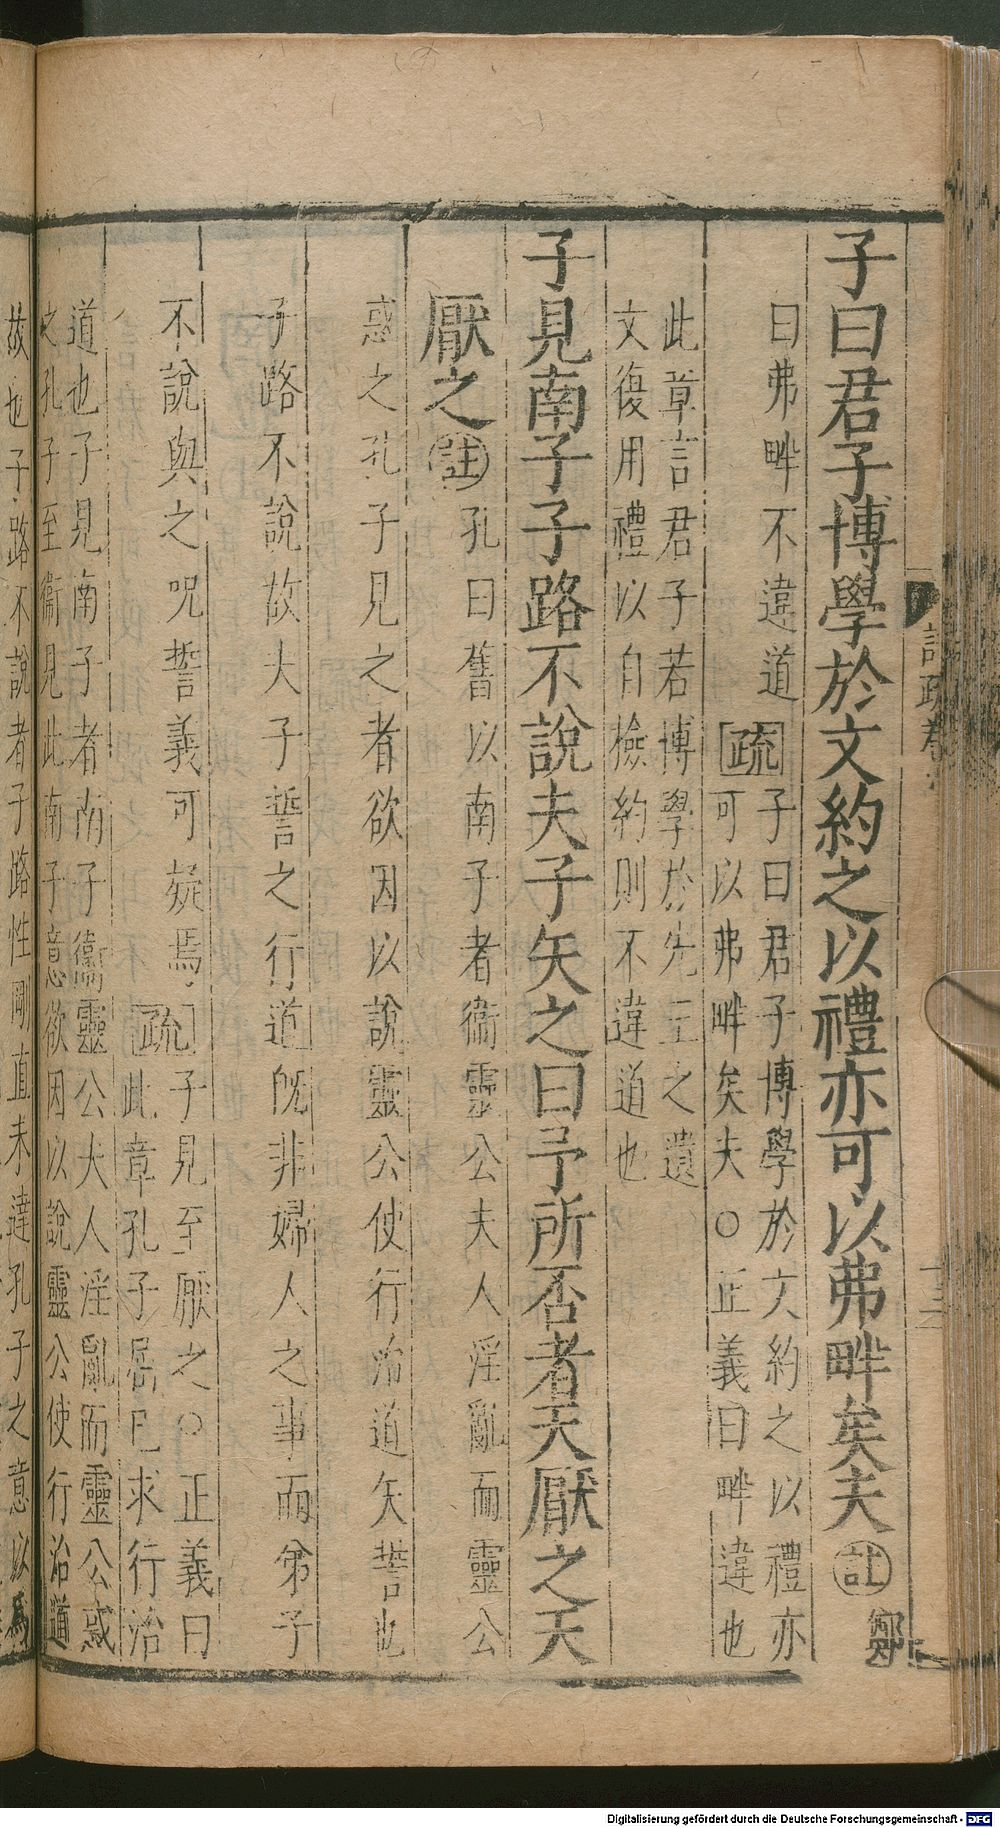 子曰君子博學於文約之以禮亦可以弗畔矣夫註鄭
曰弗畔不違道疏子曰君子博學於文約之以禮亦
可以弗畔矣夫○正義曰畔違也
此章言君子若博學於先王之遺
文復用禮以自檢約則不違道也
子見南子子路不說夫子矢之曰予所否者天厭之天
厭之註孔曰舊以南子者衞靈公夫人淫亂而靈公
惑之孔子見之者欲因以說靈公使行治道矢誓也
子路不說故夫子誓之行道旣非婦人之事而弟子
不說與之呪誓義可疑焉疏子見至厭之○正義曰
此章孔子屈已求行治
道也子見南子者南子衞靈公夫人淫亂而靈公惑
之孔子至衞見此南子意欲因以說靈公使行治道
故也子路不說者子路性剛直未達孔子之意以爲
Digitalisierung gefördert durch die Deutsche Forschungsgemeinschaft - DFG